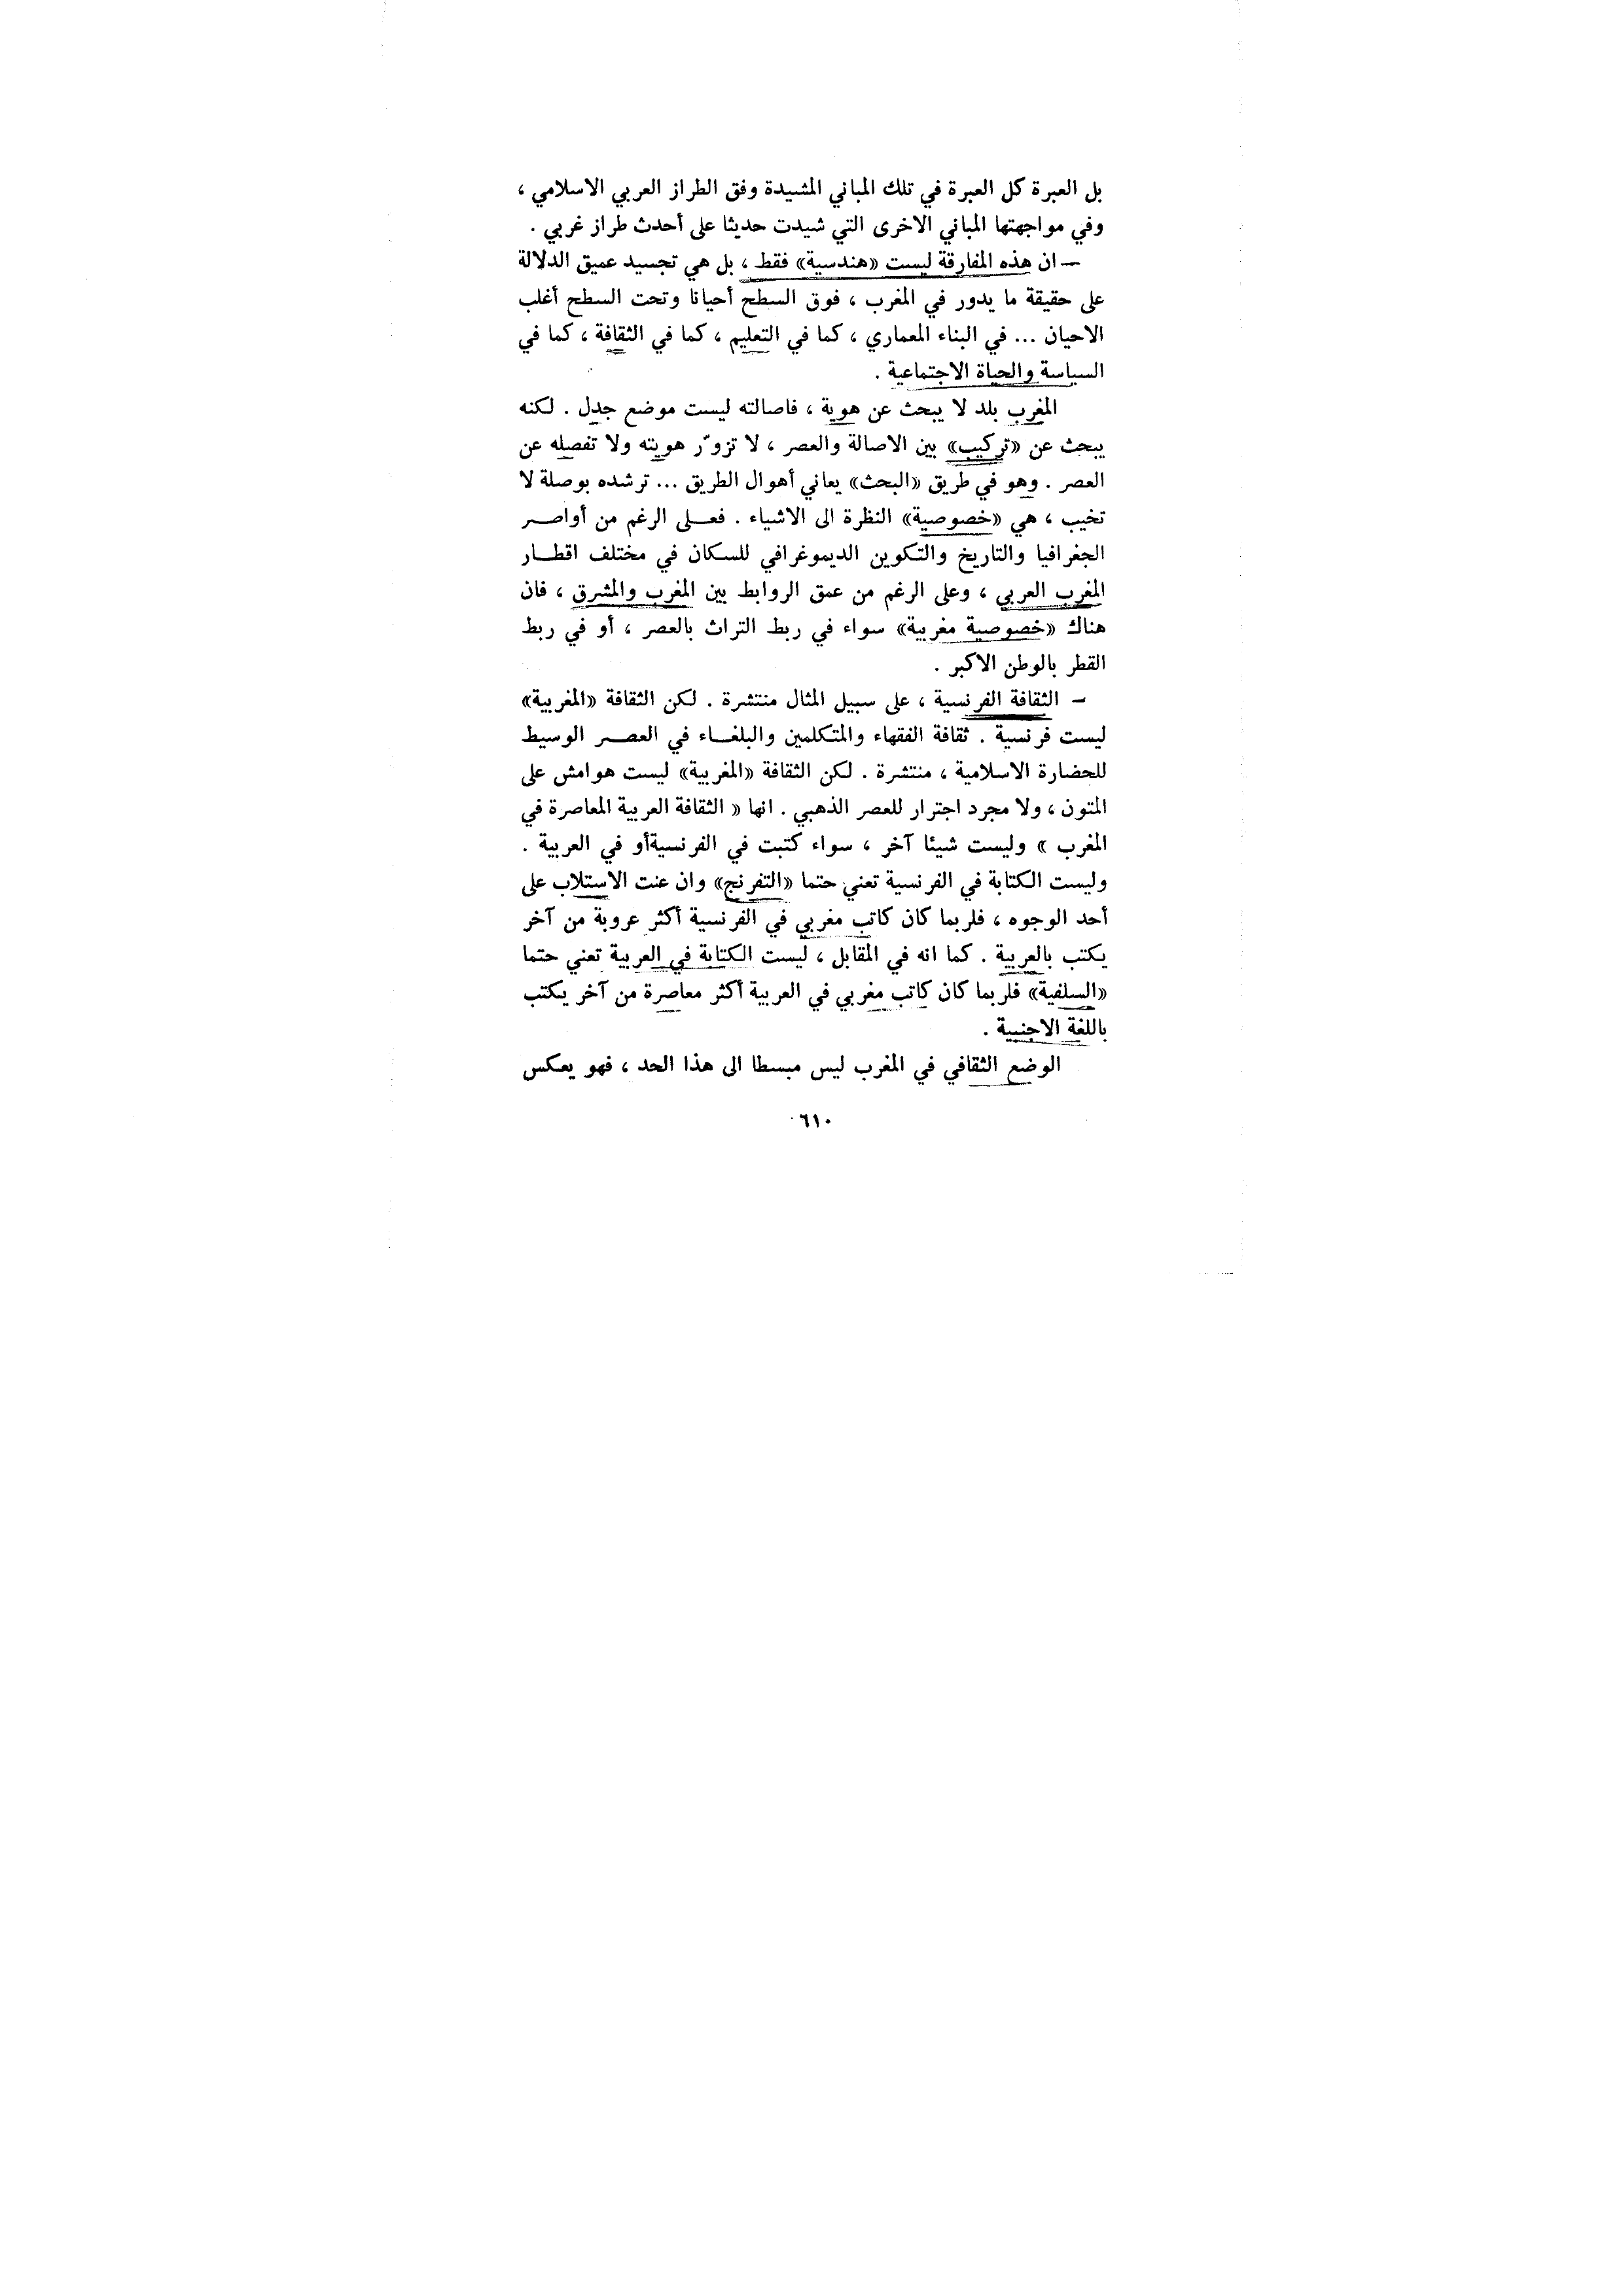 بل العبرة كل العبرة في تلك المباني المشيدة وفق الطراز العربي الاسلامي ،
وفي مواجهتها المباني الاخرى التي شيدت حديثا على أحدث طراز غربي .
— ان هذه المفارقة ليست «هندسية» فقط ، بل هي تجسيد عميق الدلالة
على حقيقة ما يدور في المغرب ، فوق السطح أحيانا وتحت السطح أغلب
الاحيان ... في البناء المعماري ، كما في التعليم ، كما في الثقافة ، كما في
السياسة والحياة الاجتماعية .
المغرب بلد لا يبحث عن هوية ، فاصالته ليست موضع جدل . لكنه
يبحث عن «تركيب» بين الاصالة والعصر ، لا تزوّر هويته ولا تفصله عن
العصر . وهو في طريق «البحث» يعاني أهوال الطريق ... ترشده بوصلة لا
تخيب ، هي «خصوصية» النظرة الى الاشياء . فعلى الرغم من أواصر
الجغرافيا والتاريخ والتكوين الديموغرافي للسكان في مختلف اقطار
المغرب العربي ، وعلى الرغم من عمق الروابط بين المغرب والمشرق ، فان
هناك «خصوصية مغربية» سواء في ربط التراث بالعصر ، أو في ربط
القطر بالوطن الاكبر .
– الثقافة الفرنسية ، على سبيل المثال منتشرة . لكن الثقافة «المغربية»
ليست فرنسية . ثقافة الفقهاء والمتكلمين والبلغاء في العصر الوسيط
للحضارة الاسلامية ، منتشرة . لكن الثقافة «المغربية» ليست هوامش على
المتون ، ولا مجرد اجترار للعصر الذهبي . انها « الثقافة العربية المعاصرة في
المغرب » وليست شيئا آخر ، سواء كتبت في الفرنسيةأو في العربية .
وليست الكتابة في الفرنسية تعني حتما «التفرنج» وان عنت الاستلاب على
أحد الوجوه ، فلربما كان كاتب مغربي في الفرنسية أكثر عروبة من آخر
يكتب بالعربية . كما انه في المقابل ، ليست الكتابة في العربية تعني حتما
«السلفية» فلربما كان كاتب مغربي في العربية أكثر معاصرة من آخر يكتب
باللغة الاجنبية .
الوضع الثقافي في المغرب ليس مبسطا الى هذا الحد ، فهو يعكس
٦١٠